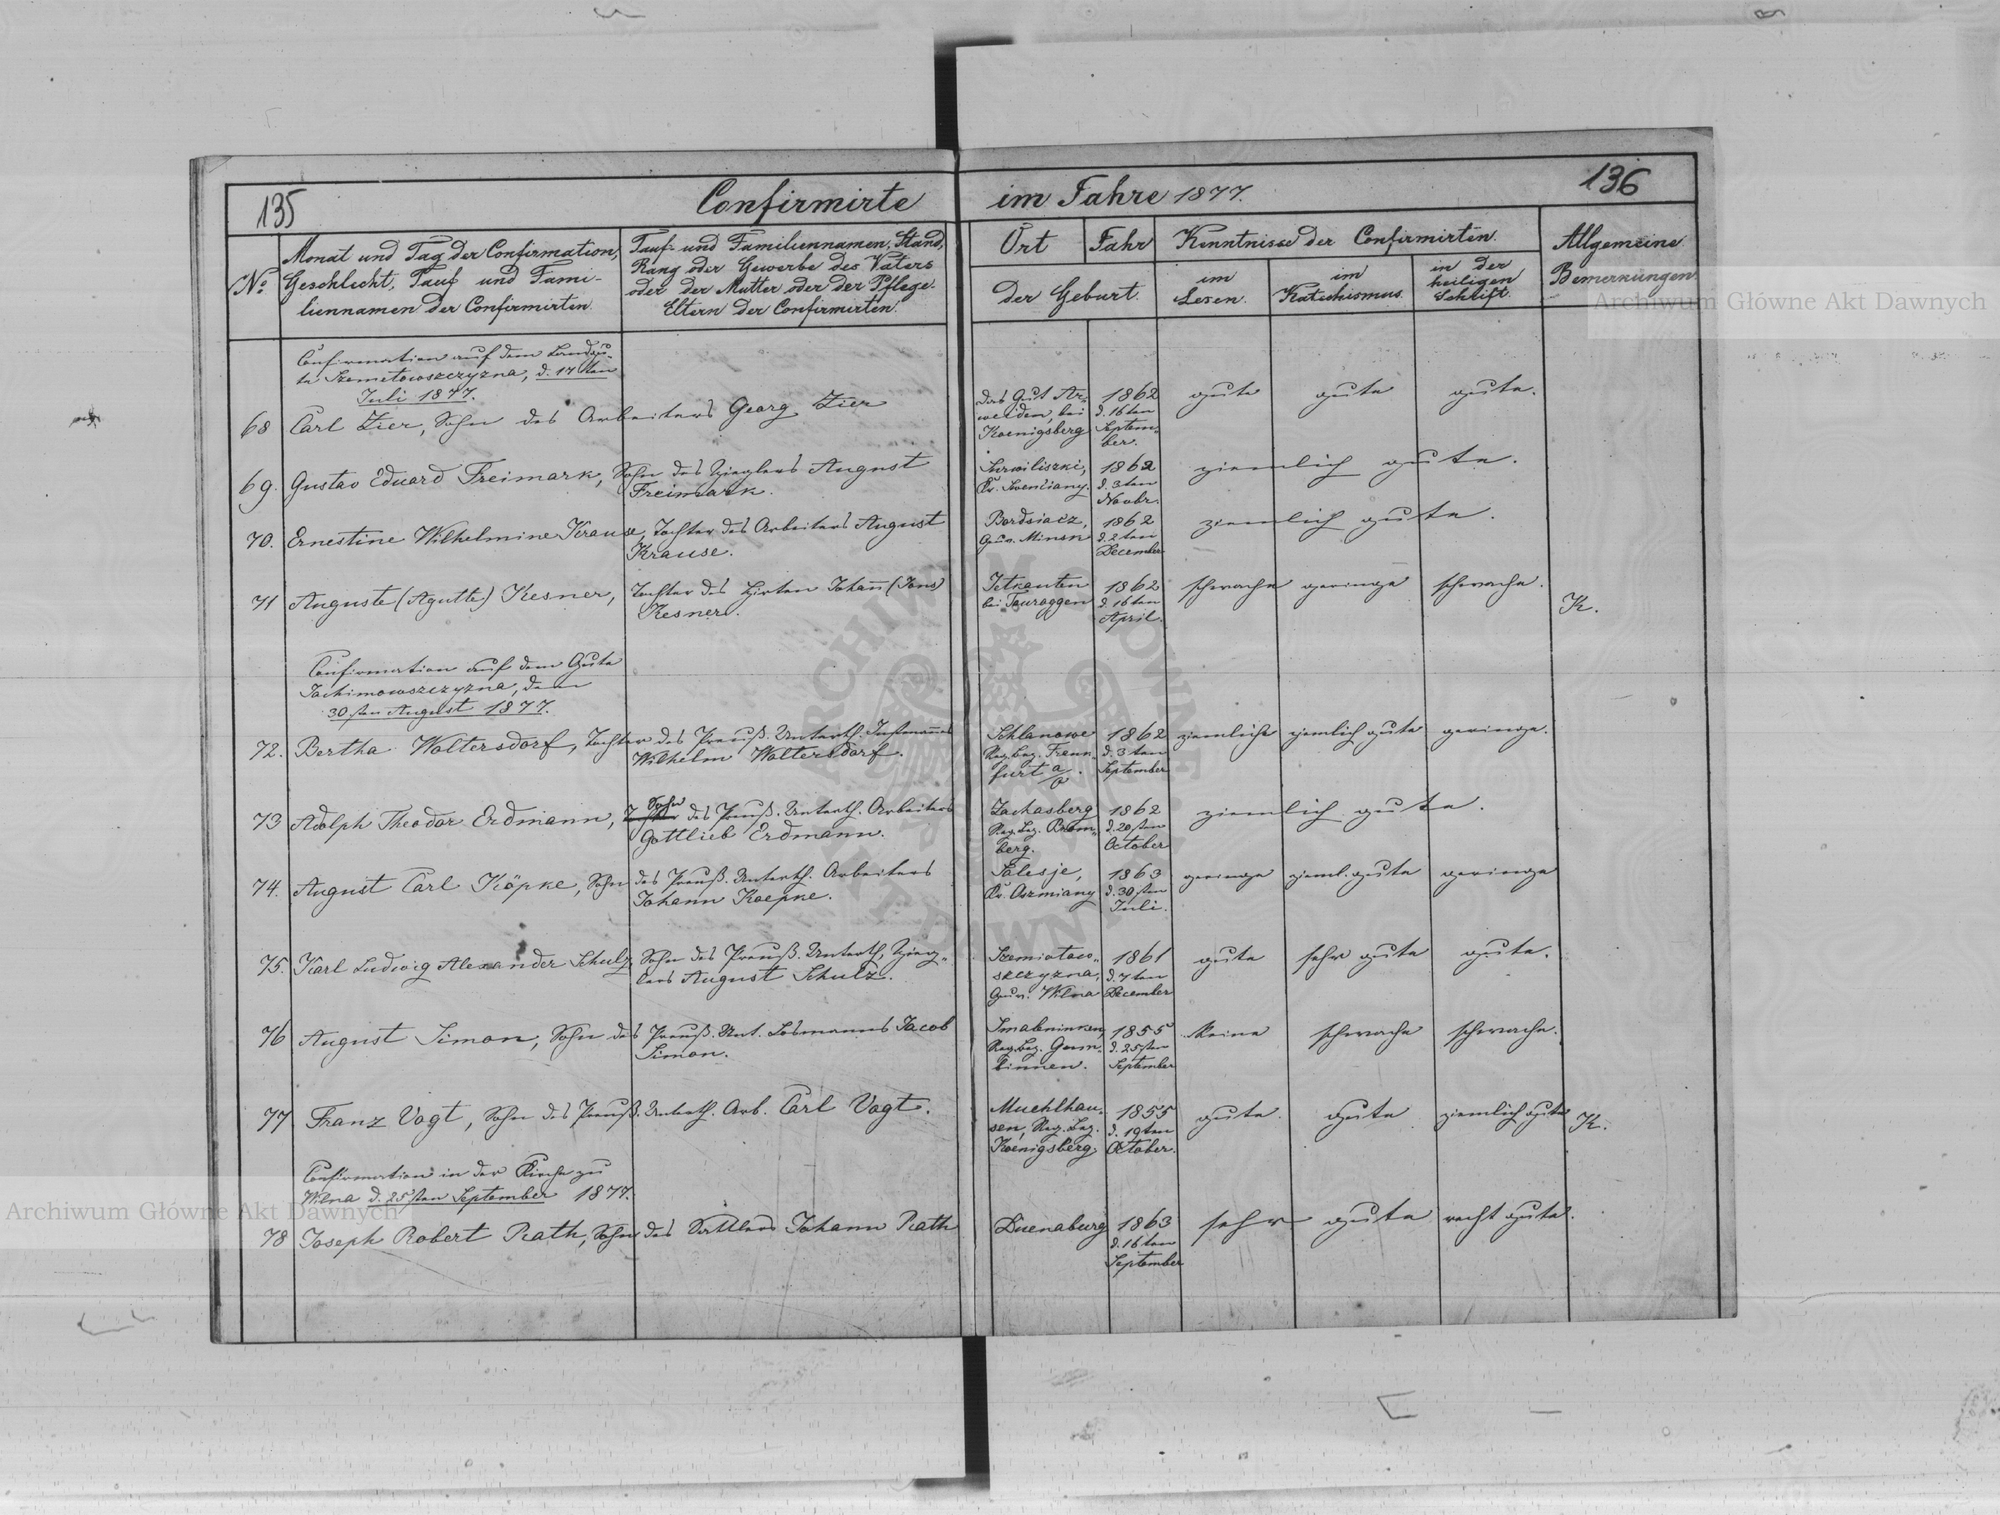 135
Confirmirte im Jahre 1877.
136
No
Monat und Tag der Confirmation,
Geschlecht, Tauf und Fami-
liennamen der Confirmirten.
Tauf- und Familiennamen, Stand,
Rang oder Gewerbe des Vaters
oder der Mutter oder der Pflege-
Eltern der Confirmirten.
Ort
Jahr
der Geburt.
Kenntnisse der Confirmirten.
im
Lesen.
im
Katechismus.
in der
heiligen
Schrift.
Allgemeine
Bemerkungen.
Confirmation auf dem Landgu-
te Szemetowszczyzna, d. 17ten
Juli 1877.
68 Carl Zier, Sohn des Arbeiters Georg Zier
das Gut Ar-
weiden, bei
Koenigsberg
1862
d. 16ten
Septem-
ber.
gute gute gute.
69. Gustav Eduard Freimark, Sohn des Zieglers August
Freimark.
Serwiliszki,
Kr. Swenciany.
1862
d. 3ten
Novbr.
ziemlich gute.
70. Ernestine Wilhelmine Krause, Tochter des Arbeiters August
Krause.
Bordsiacz,
Gouv. Minsk
1862
d. 2ten
December
ziemlich gute.
71 Auguste (Agutte.) Kesner, Tochter des Hirten Johann (Jons)
Kesner.
Jetkanten
bei Tauroggen
1862
d. 16ten
April.
schwache geringe schwache.
K.
Confirmation auf dem Gute
Jachimowszczyzna, den
30sten August 1877.
72. Bertha Woltersdorf, Tochter des Preuß. Unterth. Instmannes
Wilhelm Woltersdorf.
Schlanowe
Reg. bez. Frank-
furt a/O.
1862
d. 3ten
September
ziemliche ziemlich gute geringe.
73 Adolph Theodor Erdmann, Sohn des Preuß. Unterth. Arbeiters
Gottlieb Erdmann.
Zachasberg
Reg. bez. Brom-
berg.
1862
d. 20sten
October
ziemlich gute.
74. August Carl Köpke, Sohn des Preuß. Unterth. Arbeiters
Johann Koepke.
Salesje,
Kr. Oszmiany
1863
d. 30sten
Juli.
geringe zieml. gute geringe
75. Karl Ludwig Alexander Schulz, Sohn des Preuß. Unterth, Zieg-
lers August Schulz.
Szemiotow-
szczyzna,
Gouv. Wilna
1861
d. 7ten
December
gute sehr gute gute.
76 August Simon, Sohn des Preuß. Unt. Losmanns Jacob
Simon.
Smaleninken,
Reg. bez. Gum-
binnen.
1855
d. 25sten
September
keine schwache schwache.
77 Franz Vogt, Sohn des Preuß. Unterth. Arb. Carl Vogt.
Muehlhau-
sen, Reg. bez.
Koenigsberg
1855
d. 19ten
October.
gute. gute ziemlich gute
K.
Confirmation in der Kirche zu
Wilna d. 25sten September 1877.
78 Joseph Robert Rath, Sohn des Sattlers Johann Rath
Duenaburg
1863
d. 16ten
September
sehr gute recht gute.
Archiwum Główne Akt Dawnych
Archiwum Główne Akt Dawnych